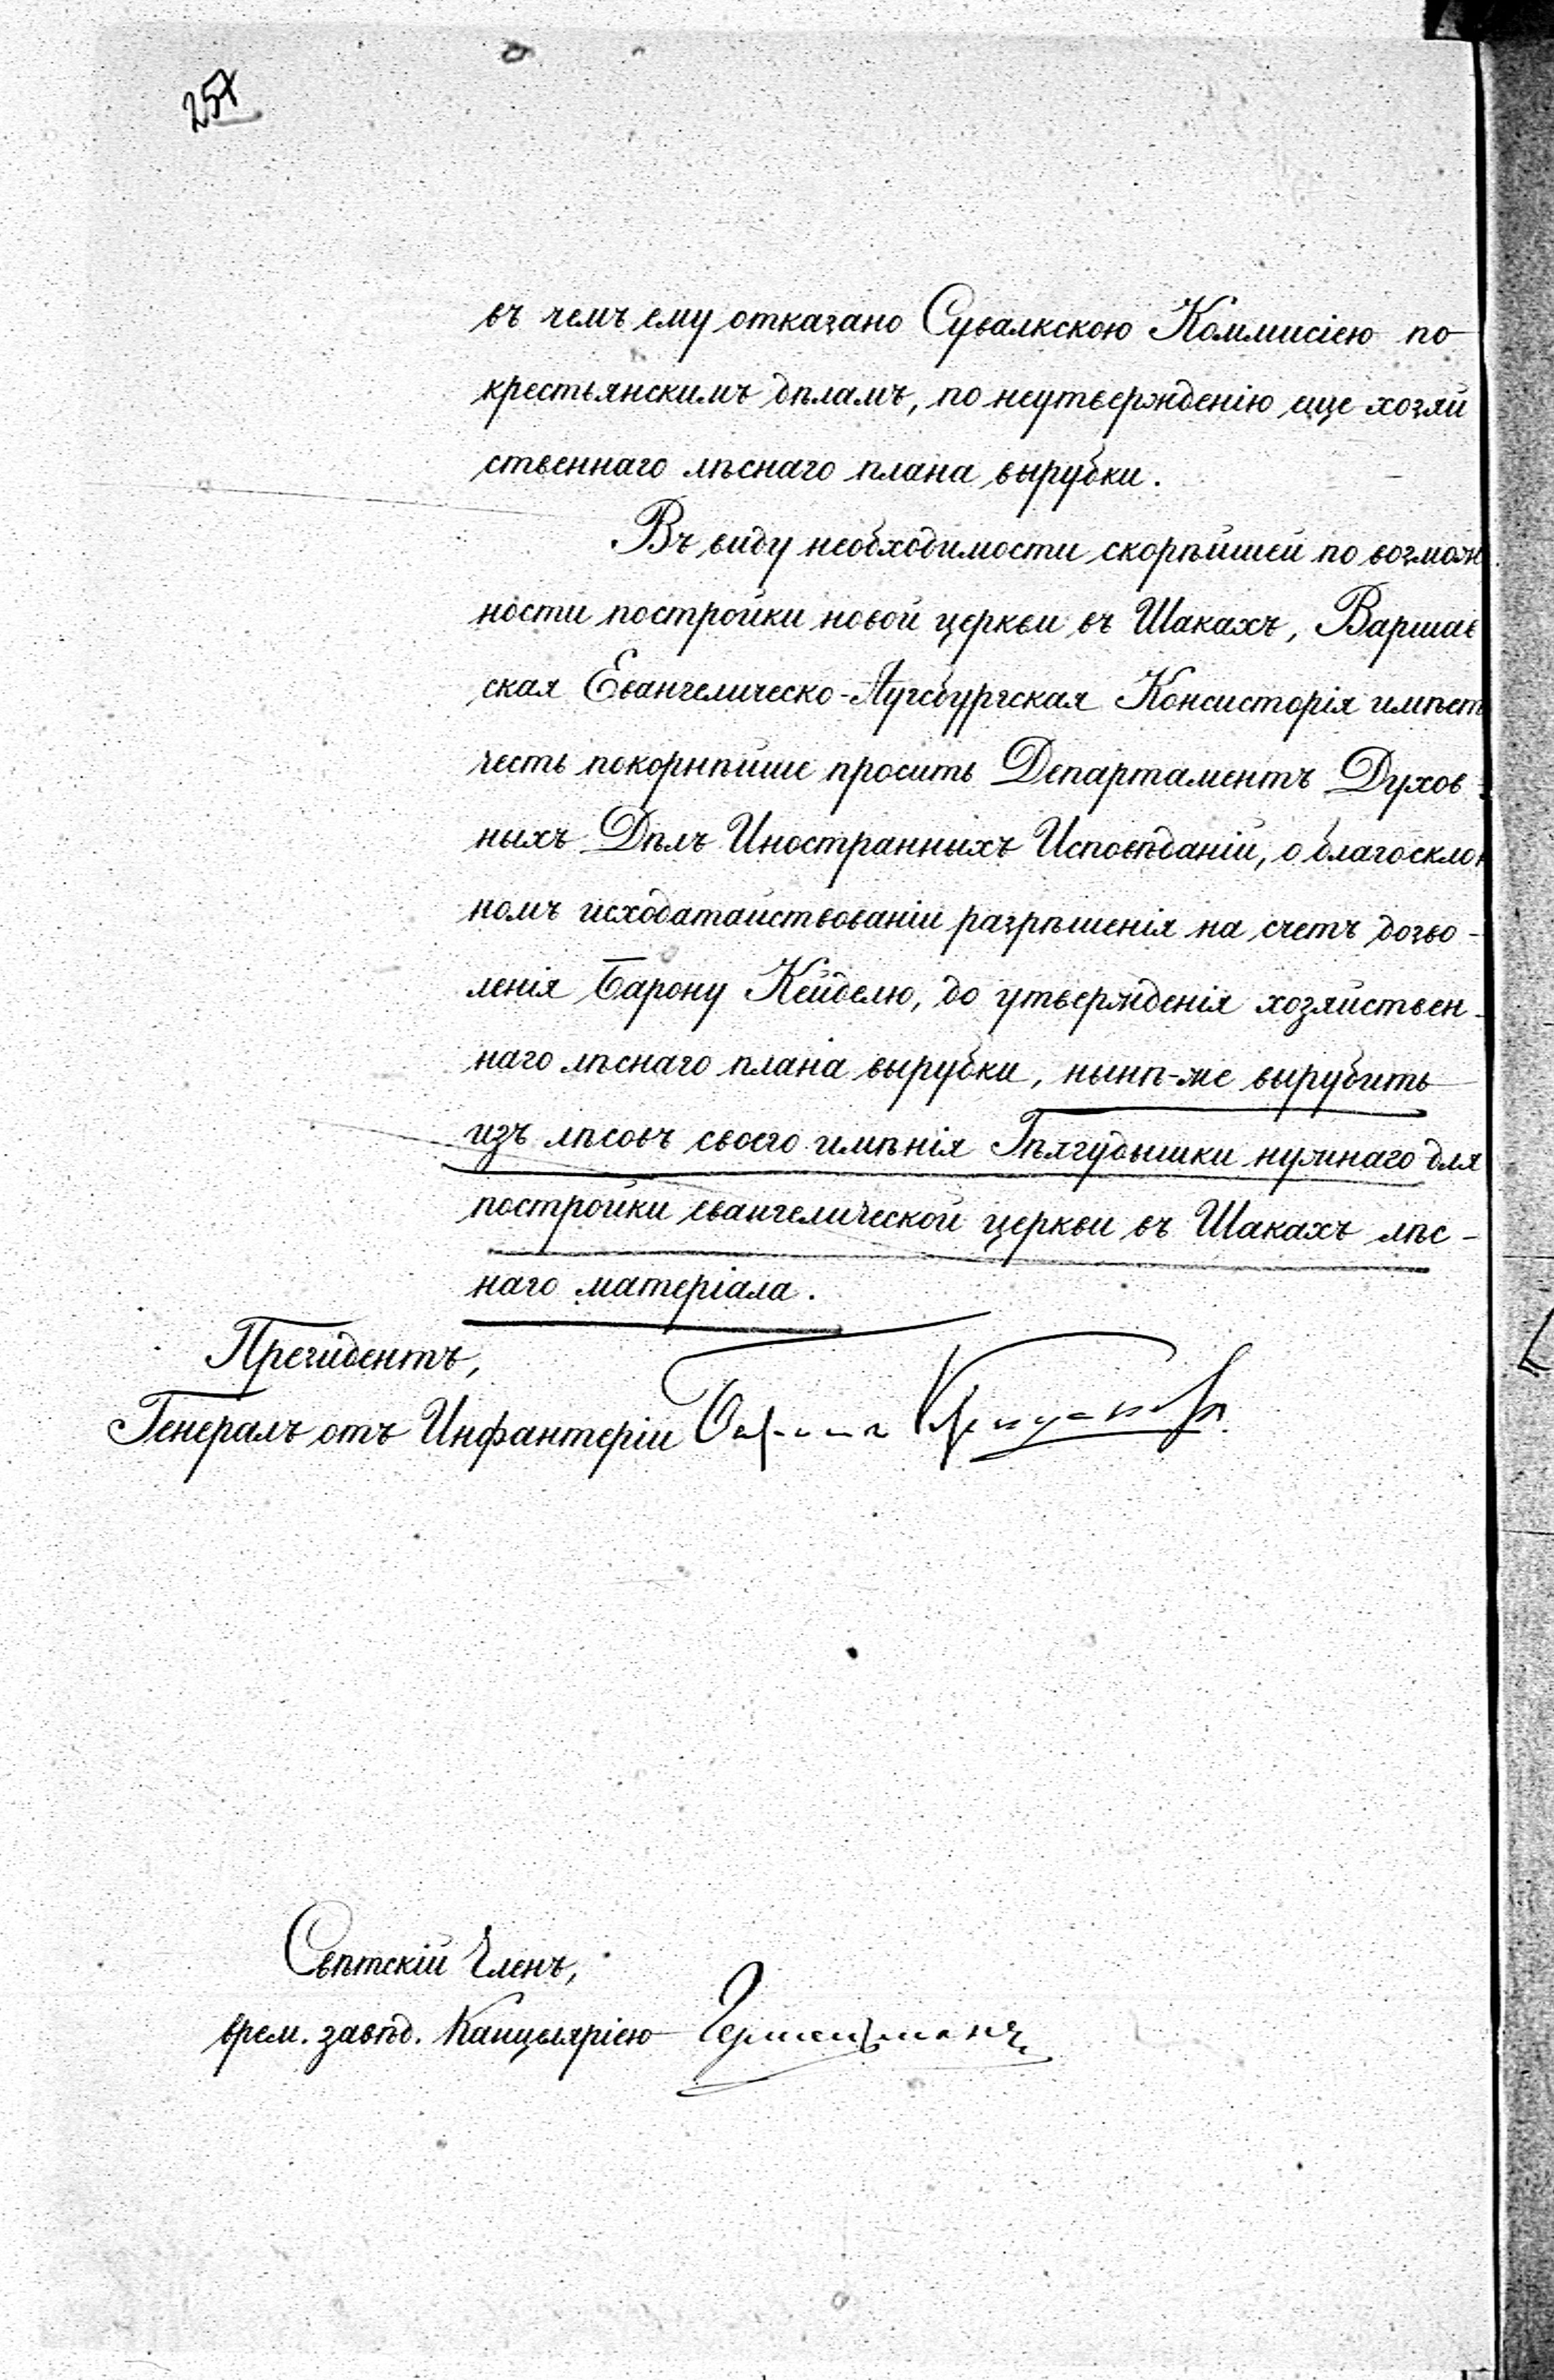 257
въ чемъ ему отказано Сувалкскою Коммисіею по
крестьянскимъ дѣламъ, по неутвержденію еще хозяй
ственнаго лѣснаго плана вырубки.
Въ виду необходимости скорѣйшей по возмож
ности постройки новой церкви въ Шакахъ, Варшав
ская Евангелическо-Аугсбургская Консисторія имѣет
честь покорнѣйше просить Департаментъ Духов
ныхъ Дѣлъ Иностранныхъ Исповѣданій, о благосклон
номъ исходатайствованіи разрѣшенія на счетъ дозво-
ленія Барону Кейделю, до утвержденія хозяйствен-
наго лѣснаго плана вырубки, нынѣ-же вырубить
изъ лѣсовъ своего имѣнія Гѣлгудышки нужнаго для
постройки евангелической церкви въ Шакахъ лѣс-
наго матеріала.
Президентъ,
Генералъ отъ Инфантеріи Баронъ
Свѣтскій Членъ,
врем. завѣд. Канцеляріею